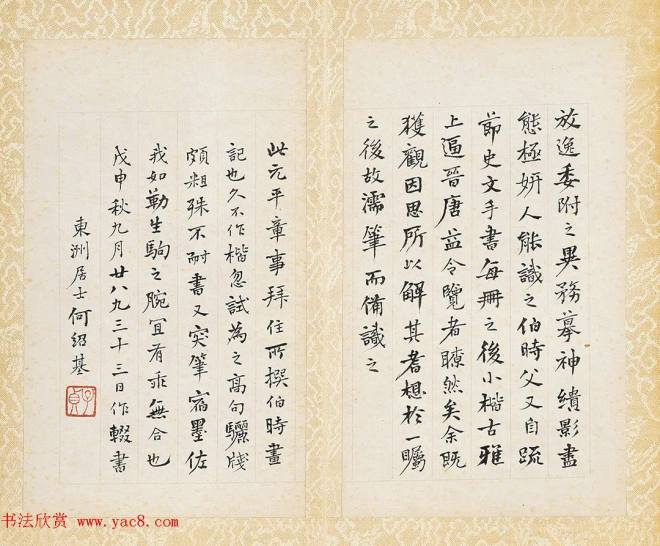 放逸委附之異務摹神繢影盡
態極妍人能識之伯時父又自疏
節史文手書每冊之後小楷古雅
上逼晉唐益令覽者瞭然矣余既
獲觀因思所以解其耆想於一矚
之後故濡筆而備識之
此元平章事拜住所撰伯時畫
記也久不作楷忽試為之高句驪牋
頗粗殊不耐書又突筆宿墨佐
我如勒生駒之腕宜有乖無合也
戊申秋九月廿八九三十三日作輟書
東洲居士何紹基
子貞
书法欣赏 www.yac8.com